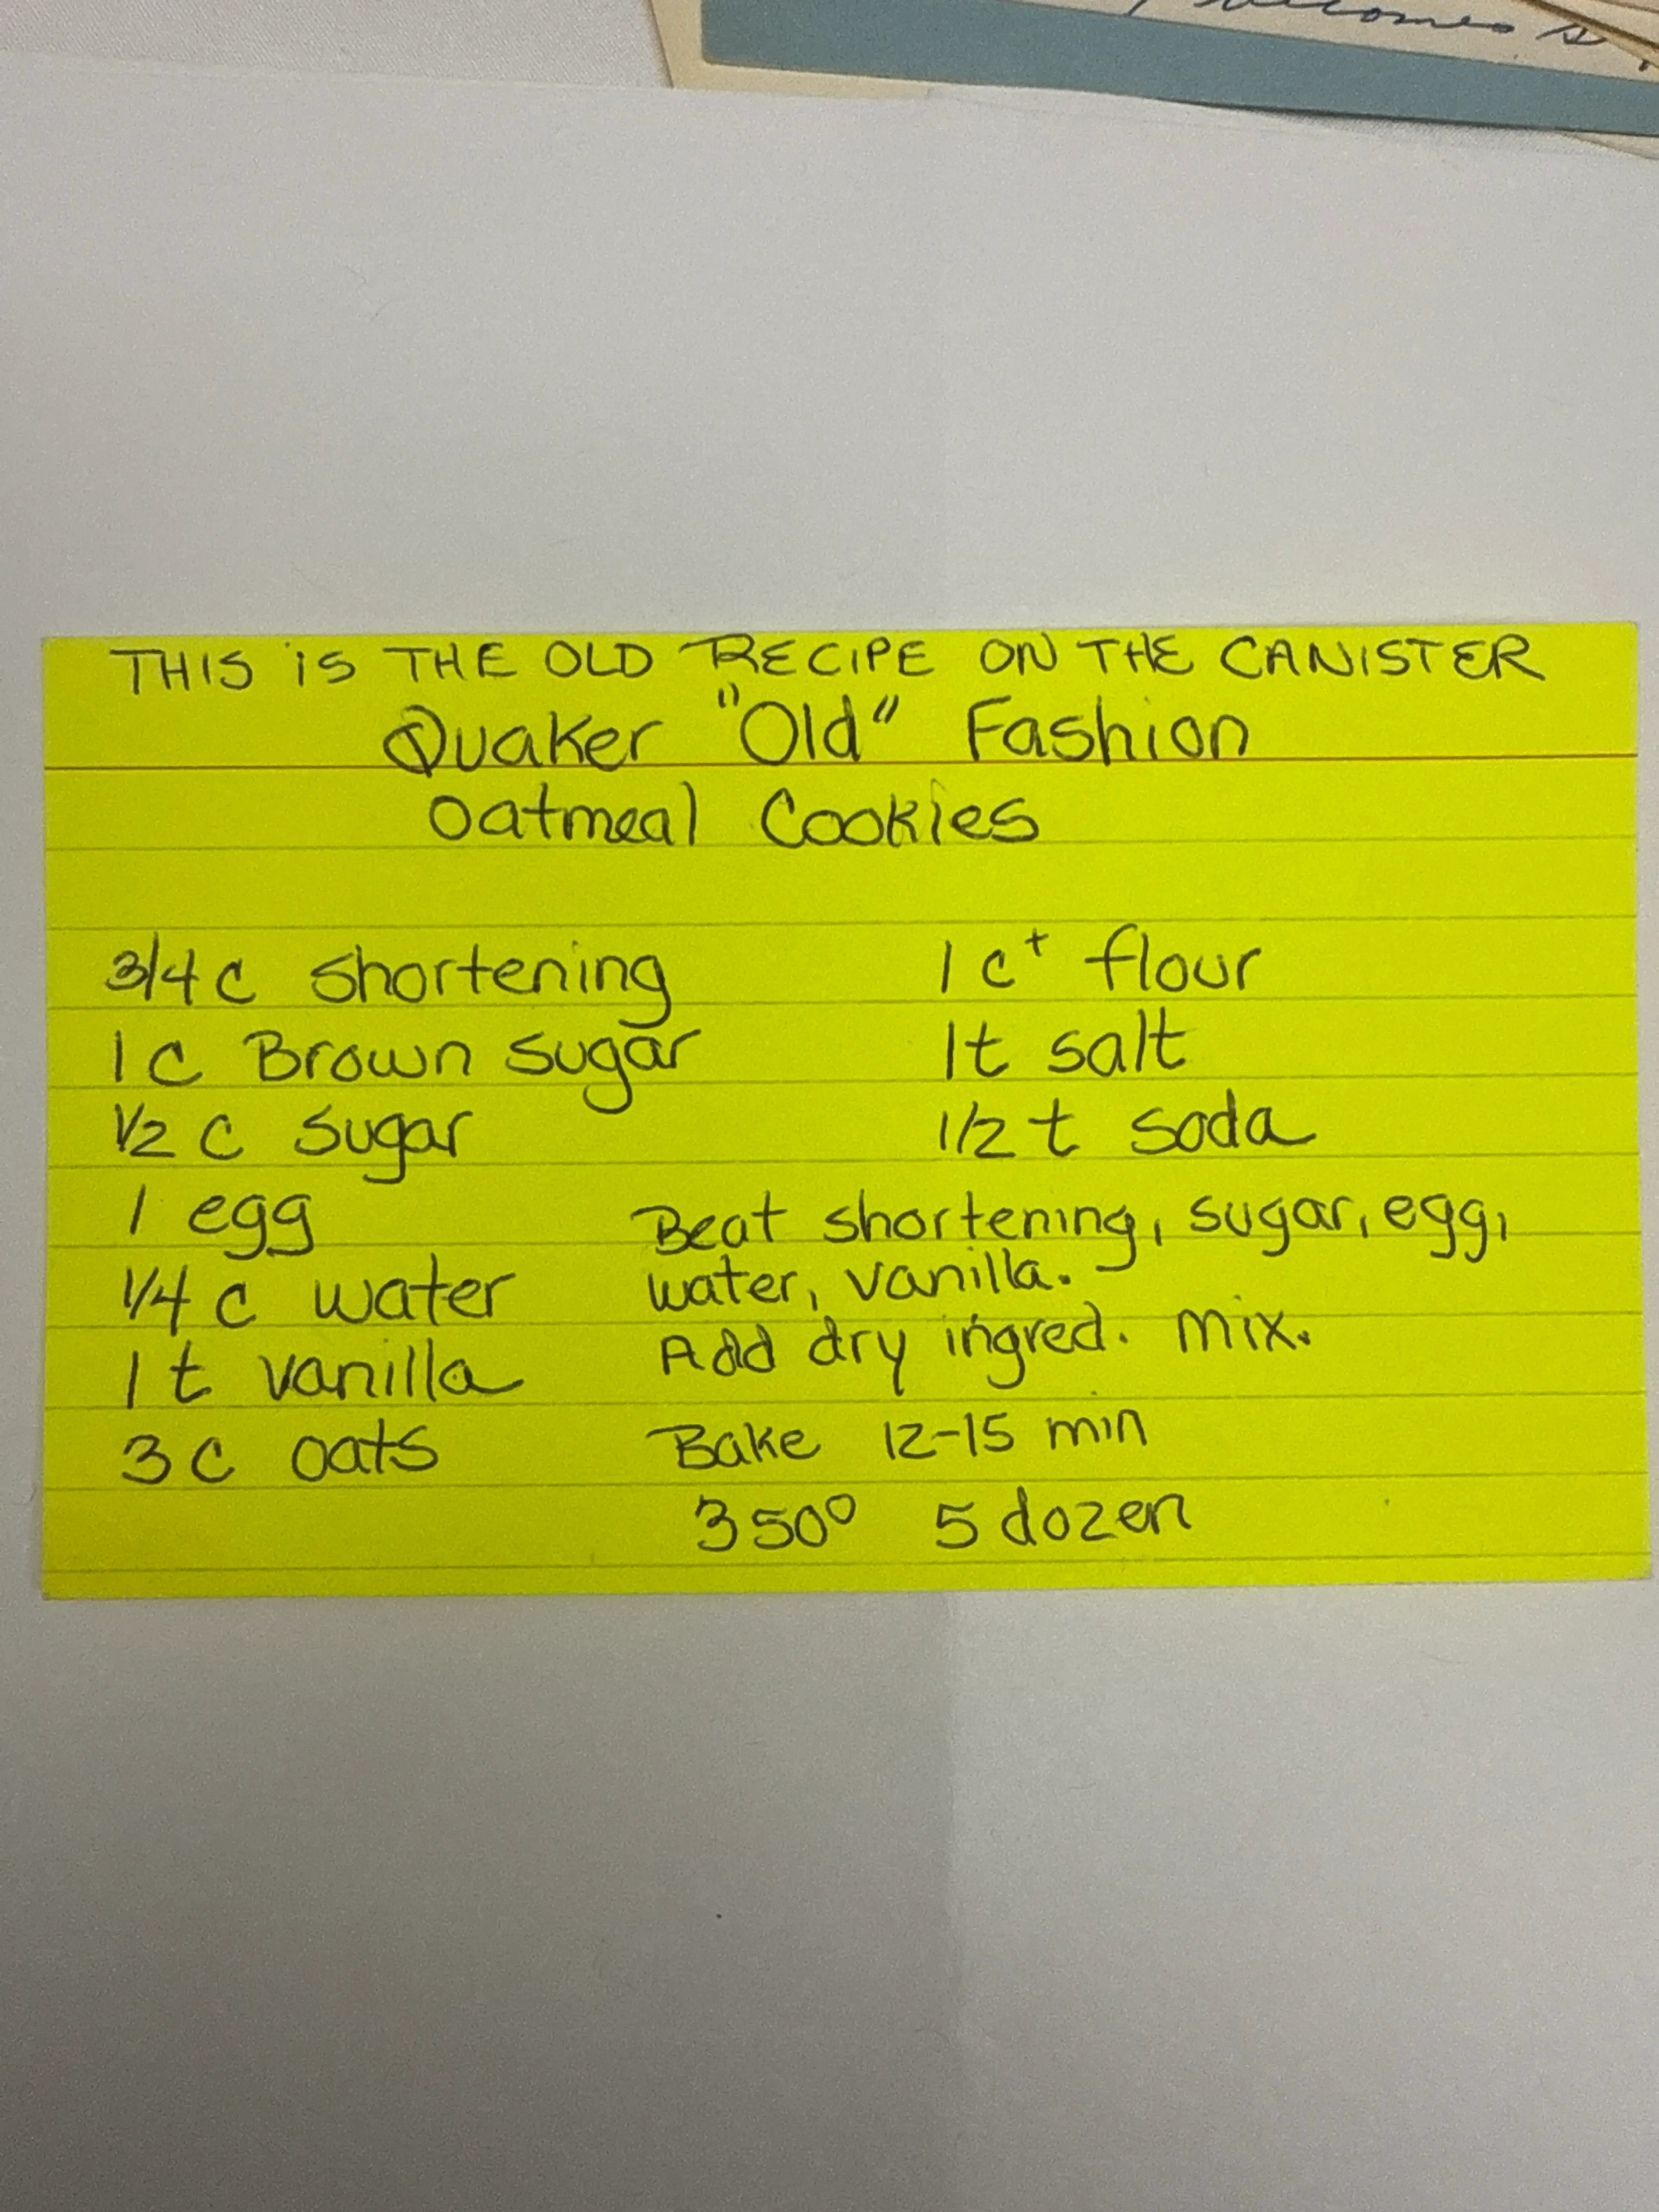 becomes
THIS iS THE OLD RECIPE ON THE CANISTER
Quaker "Old" Fashion
Oatmeal Cookies
3/4 c shortening
1 c Brown sugar
1/2 c sugar
1 egg
1/4 c water
1 t vanilla
3 c oats
1 c+ flour
1t salt
1/2 t soda
Beat shortening, sugar, egg,
water, vanilla.
Add dry ingred. mix.
Bake 12-15 min
350° 5 dozen